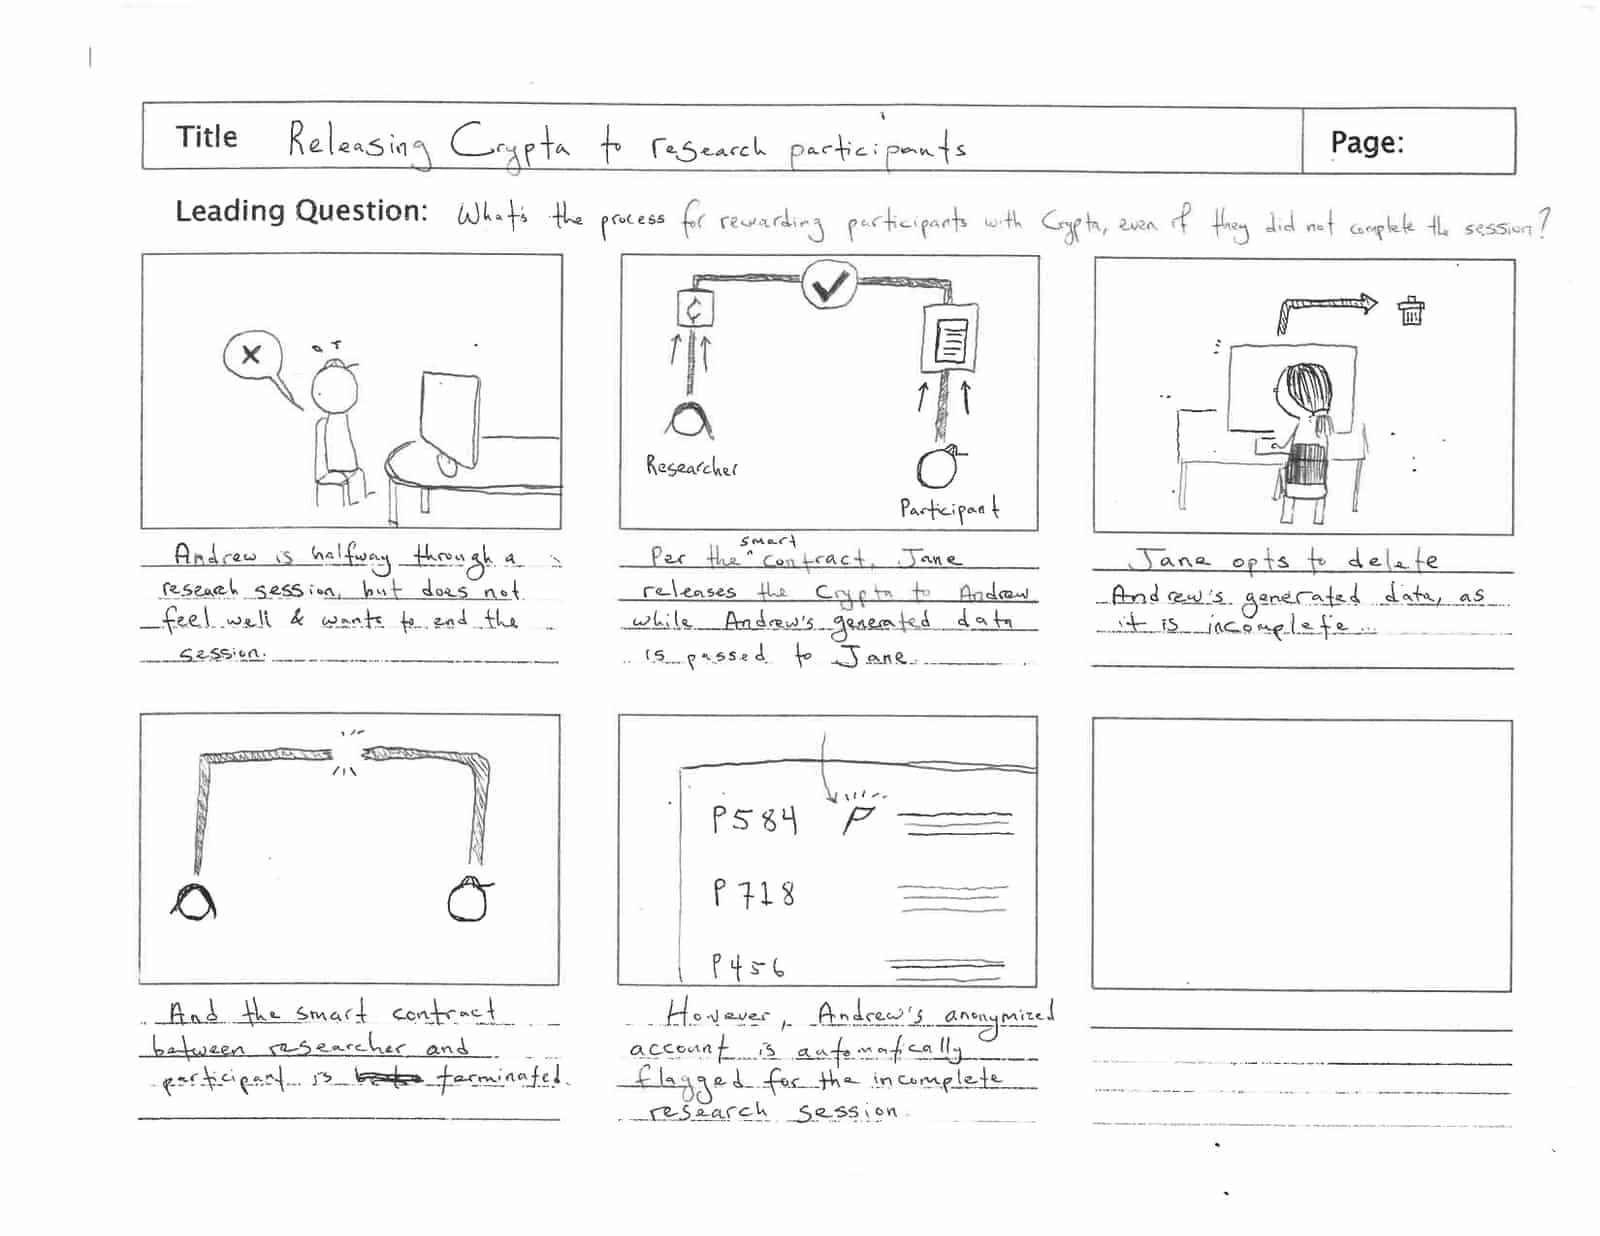 Title Releasing Crypta to research participants
Page:
Leading Question: What's the process for rewarding participants with Crypta, even if they did not complete the session?
X
¢
Researcher
Participant
Andrew is halfway through a
research session, but does not
feel well & wants to end the
session.
Per the ^smart contract, Jane
releases the Crypta to Andrew
while Andrew's generated data
is passed to Jane
Jane opts to delete
Andrew's generated data, as
it is incomplete
P584
P718
P456
And the smart contract
between researcher and
participant is terminated.
However, Andrew's anonymized
account is automatically
flagged for the incomplete
research session.